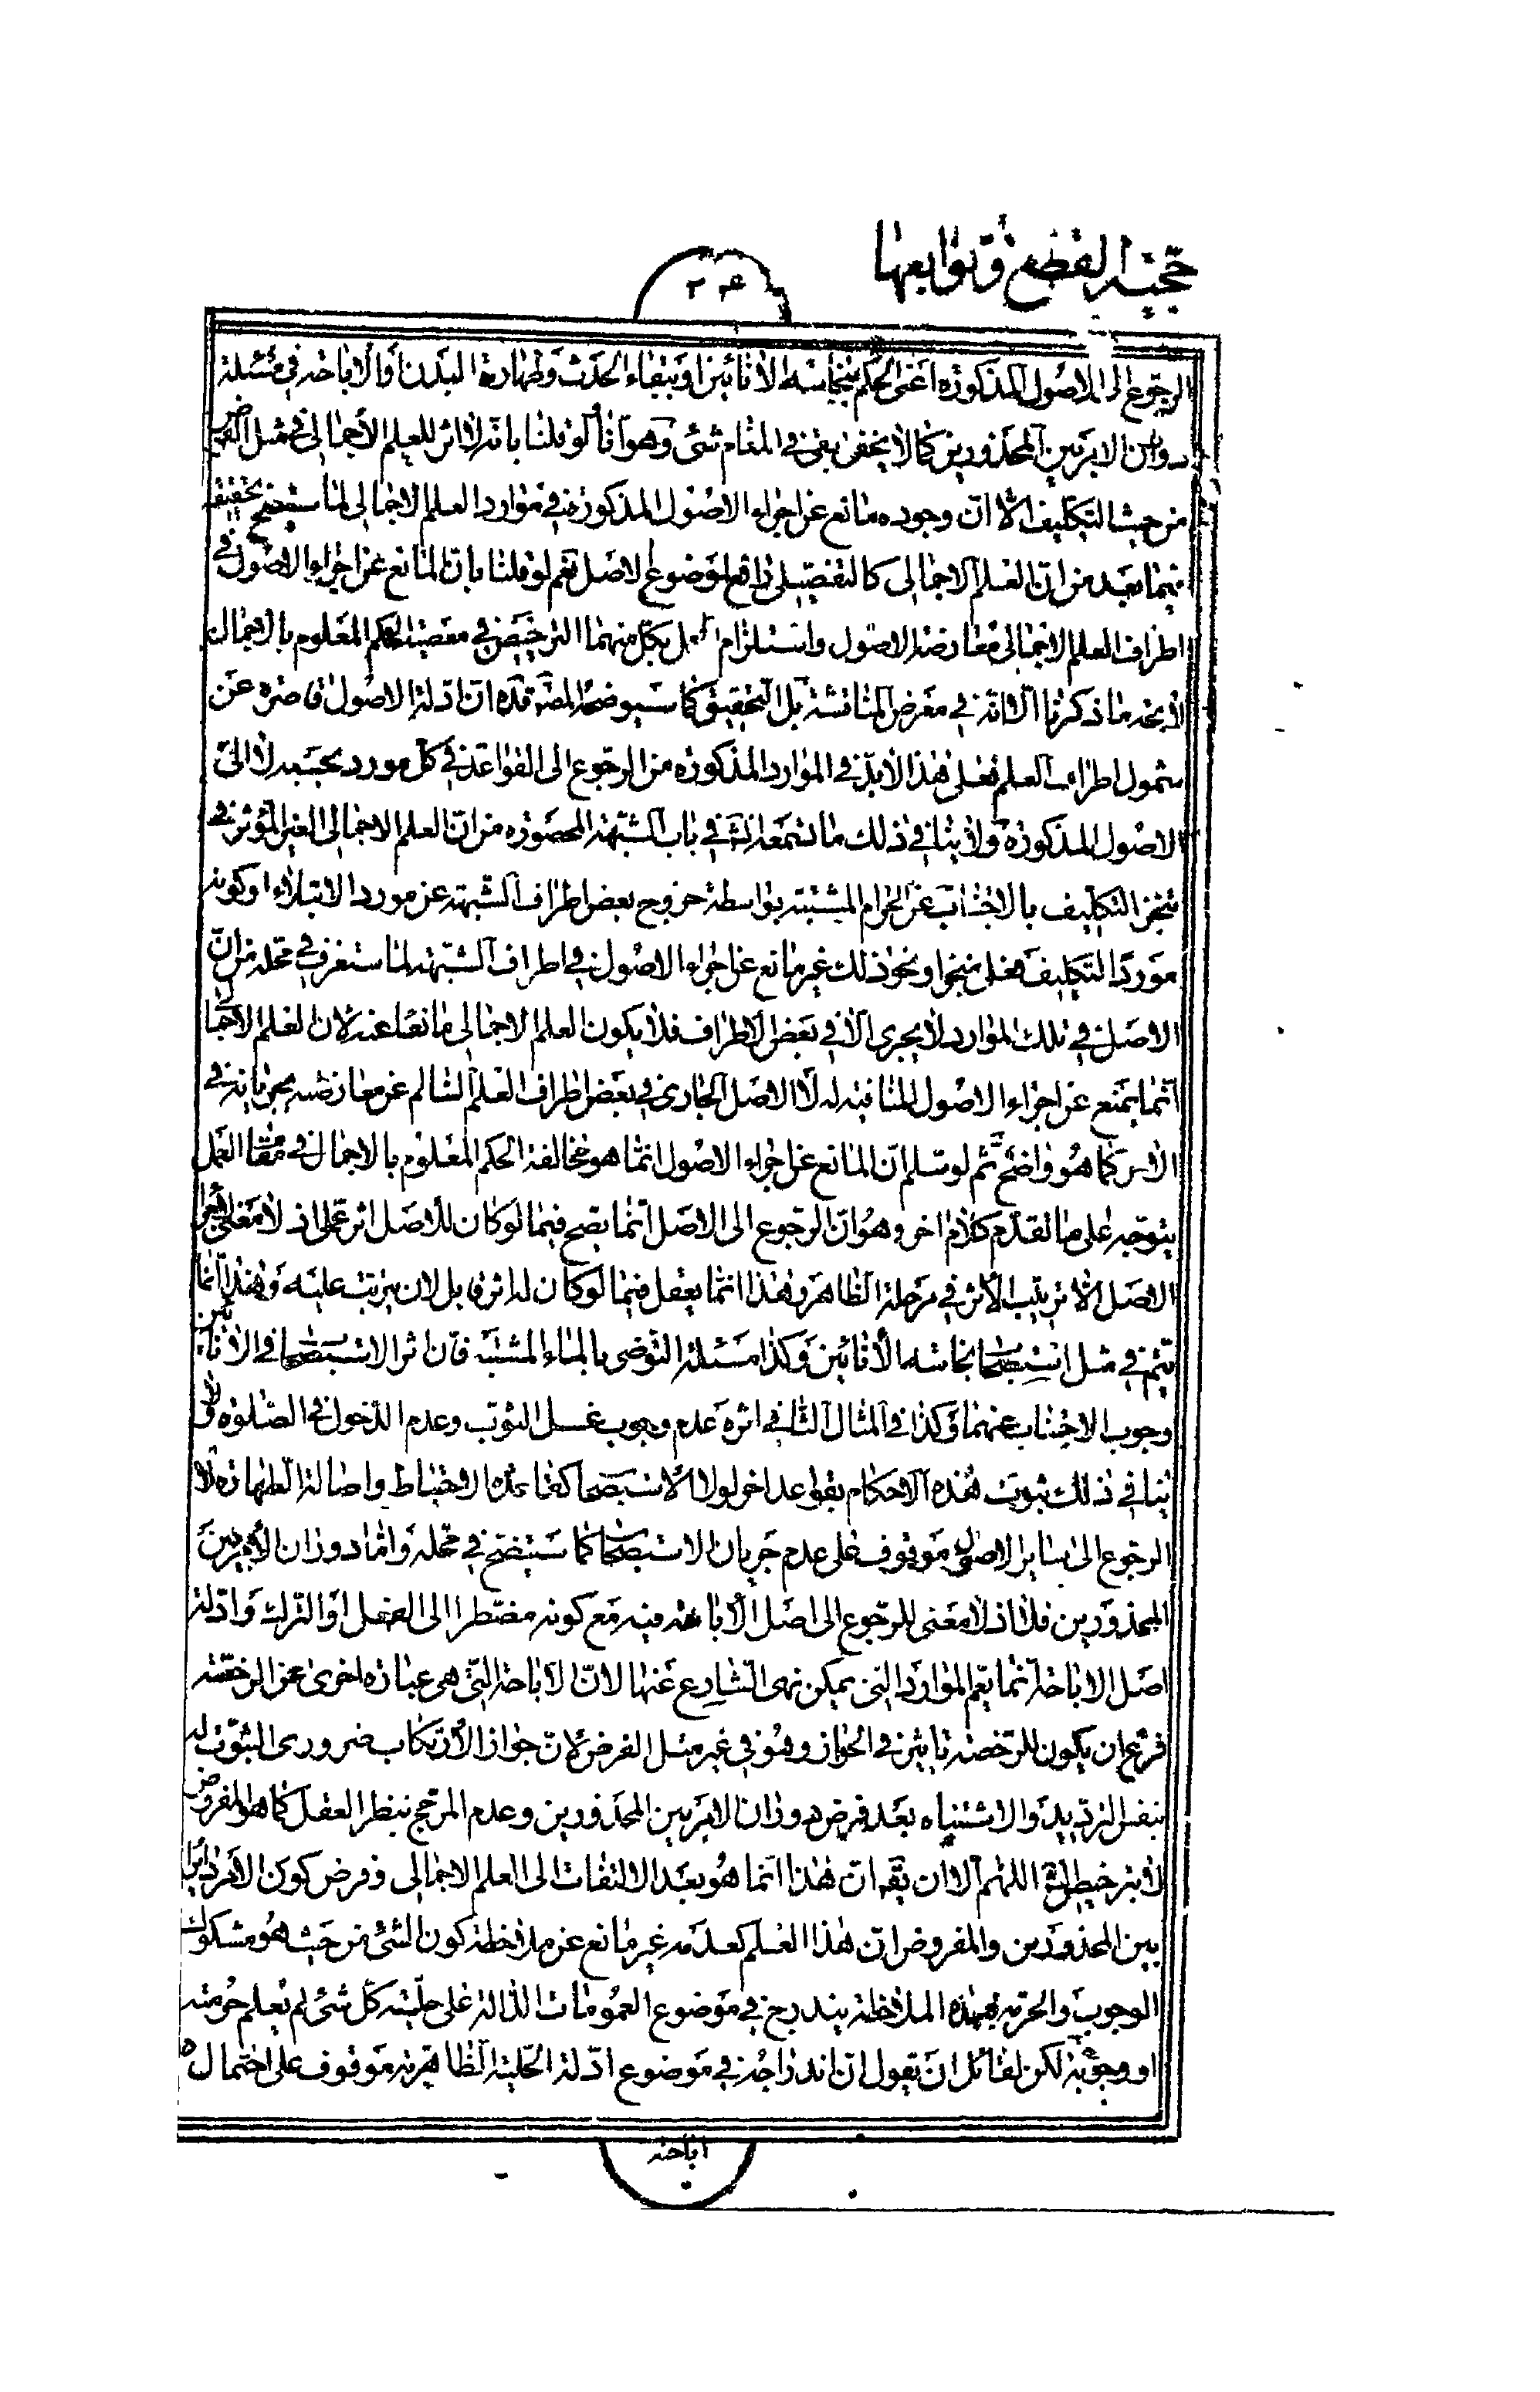 حجية القطع وتوابعها
۲۴
الرجوع الى الاصول المذكورة اعنى الحكم بنجاسة الانائين او ببقاء الحدث وطهارة البدن والاباحة فى مسئلة
دوران الامر بين المحذورين كما لا يخفى بقى فى المقام شئ وهو انا لو قلنا بانه لا اثر للعلم الاجمالى فى مثل الفرض
من حيث التكليف الا ان وجوده مانع عن اجراء الاصول المذكورة فى موارد العلم الاجمالى لما ستضح تحقيقه
فيما بعد من ان العلم الاجمالى كالتفصيلى رافع لموضوع الاصل نعم لو قلنا بان المانع عن اجراء الاصول فى
اطراف العلم الاجمالى معارضة الاصول واستلزام العمل بكل منهما الترخيص فى معصية الحكم المعلوم بالاجمال
لا يتجه ما ذكرنا الا انه فى معرض المناقشة بل التحقيق كما سيوضحه المصنف قده ان ادلة الاصول قاصرة عن
شمول اطراف العلم فعلى هذا لا بد فى الموارد المذكورة من الرجوع الى القواعد فى كل مورد بحسبه لا الى
الاصول المذكورة ولا ينافى ذلك ما تسمعه فى باب الشبهة المحصورة من ان العلم الاجمالى الغير المؤثر فى
تنجز التكليف بالاجتناب عن الحرام المشتبه بواسطة خروج بعض اطراف الشبهة عن مورد الابتلاء او كونه
موردا لتكليف فعلى منجز او نحو ذلك غير مانع عن اجراء الاصول فى اطراف الشبهة لما ستعرف فى محله من ان
الاصل فى تلك الموارد لا يجرى الا فى بعض الاطراف فلا يكون العلم الاجمالى مانعا عنه لان العلم الاجمالى
انما يمنع عن اجراء الاصول المنافية له لا الاصل الجارى فى بعض اطراف العلم السالم عن معارضته بجريانه فى
الاخر كما هو واضح ثم لو سلم ان المانع عن اجراء الاصول انما هو مخالفة الحكم المعلوم بالاجمال فى مقام العمل
يتوجه على ما تقدم كلام اخر وهو ان الرجوع الى الاصل انما يصح فيما لو كان للاصل اثر عملى اذ لا معنى لاجراء
الاصل الا ترتيب الاثر فى مرحلة الظاهر وهذا انما يعقل فيما لو كان له اثر قابل لان يترتب عليه وهذا انما
يتم فى مثل استصحاب نجاسة الانائين وكذا مسئلة التوضى بالماء المشتبه فان اثر الاستصحاب فى الانائين
وجوب الاجتناب عنهما وكذا فى المثال الثانى اثره عدم وجوب غسل الثوب وعدم الدخول فى الصلوة ولا
ينافى ذلك ثبوت هذه الاحكام بقواعد اخر لولا الاستصحاب كقاعدة الاحتياط واصالة الطهارة لان
الرجوع الى ساير الاصول موقوف على عدم جريان الاستصحاب كما ستضح فى محله واما دوران الامر بين
المحذورين فلا اذ لا معنى للرجوع الى اصل الاباحة فيه مع كونه مضطرا الى الفعل او الترك وادلة
اصل الاباحة انما تعم الموارد التى يمكن نهى الشارع عنها لان الاباحة التى هى عبارة اخرى عن الرخصة
فرع ان يكون للرخصة تاثير فى الجواز وهو فى غير مثل الفرض لان جواز الارتكاب ضرورى الثبوت له
بنفس الترديد والاشتباه بعد فرض دوران الامر بين المحذورين وعدم المرجح بنظر العقل كما هو المفروض
لا بترخيص اللهم الا ان يقه ان هذا انما هو بعد الالتفات الى العلم الاجمالى وفرض كون الامر دائرا
بين المحذورين والمفروض ان هذا العلم كعدمه غير مانع عن ملاحظة كون الشئ من حيث هو مشكوك
الوجوب والحرمة فبهذه الملاحظة يندرج فى موضوع العمومات الدالة على حلية كل شئ لم يعلم حرمته
او وجوبه لكن لقائل ان يقول ان اندراجه فى موضوع ادلة الحلية الظاهرية موقوف على احتمال
اباحته